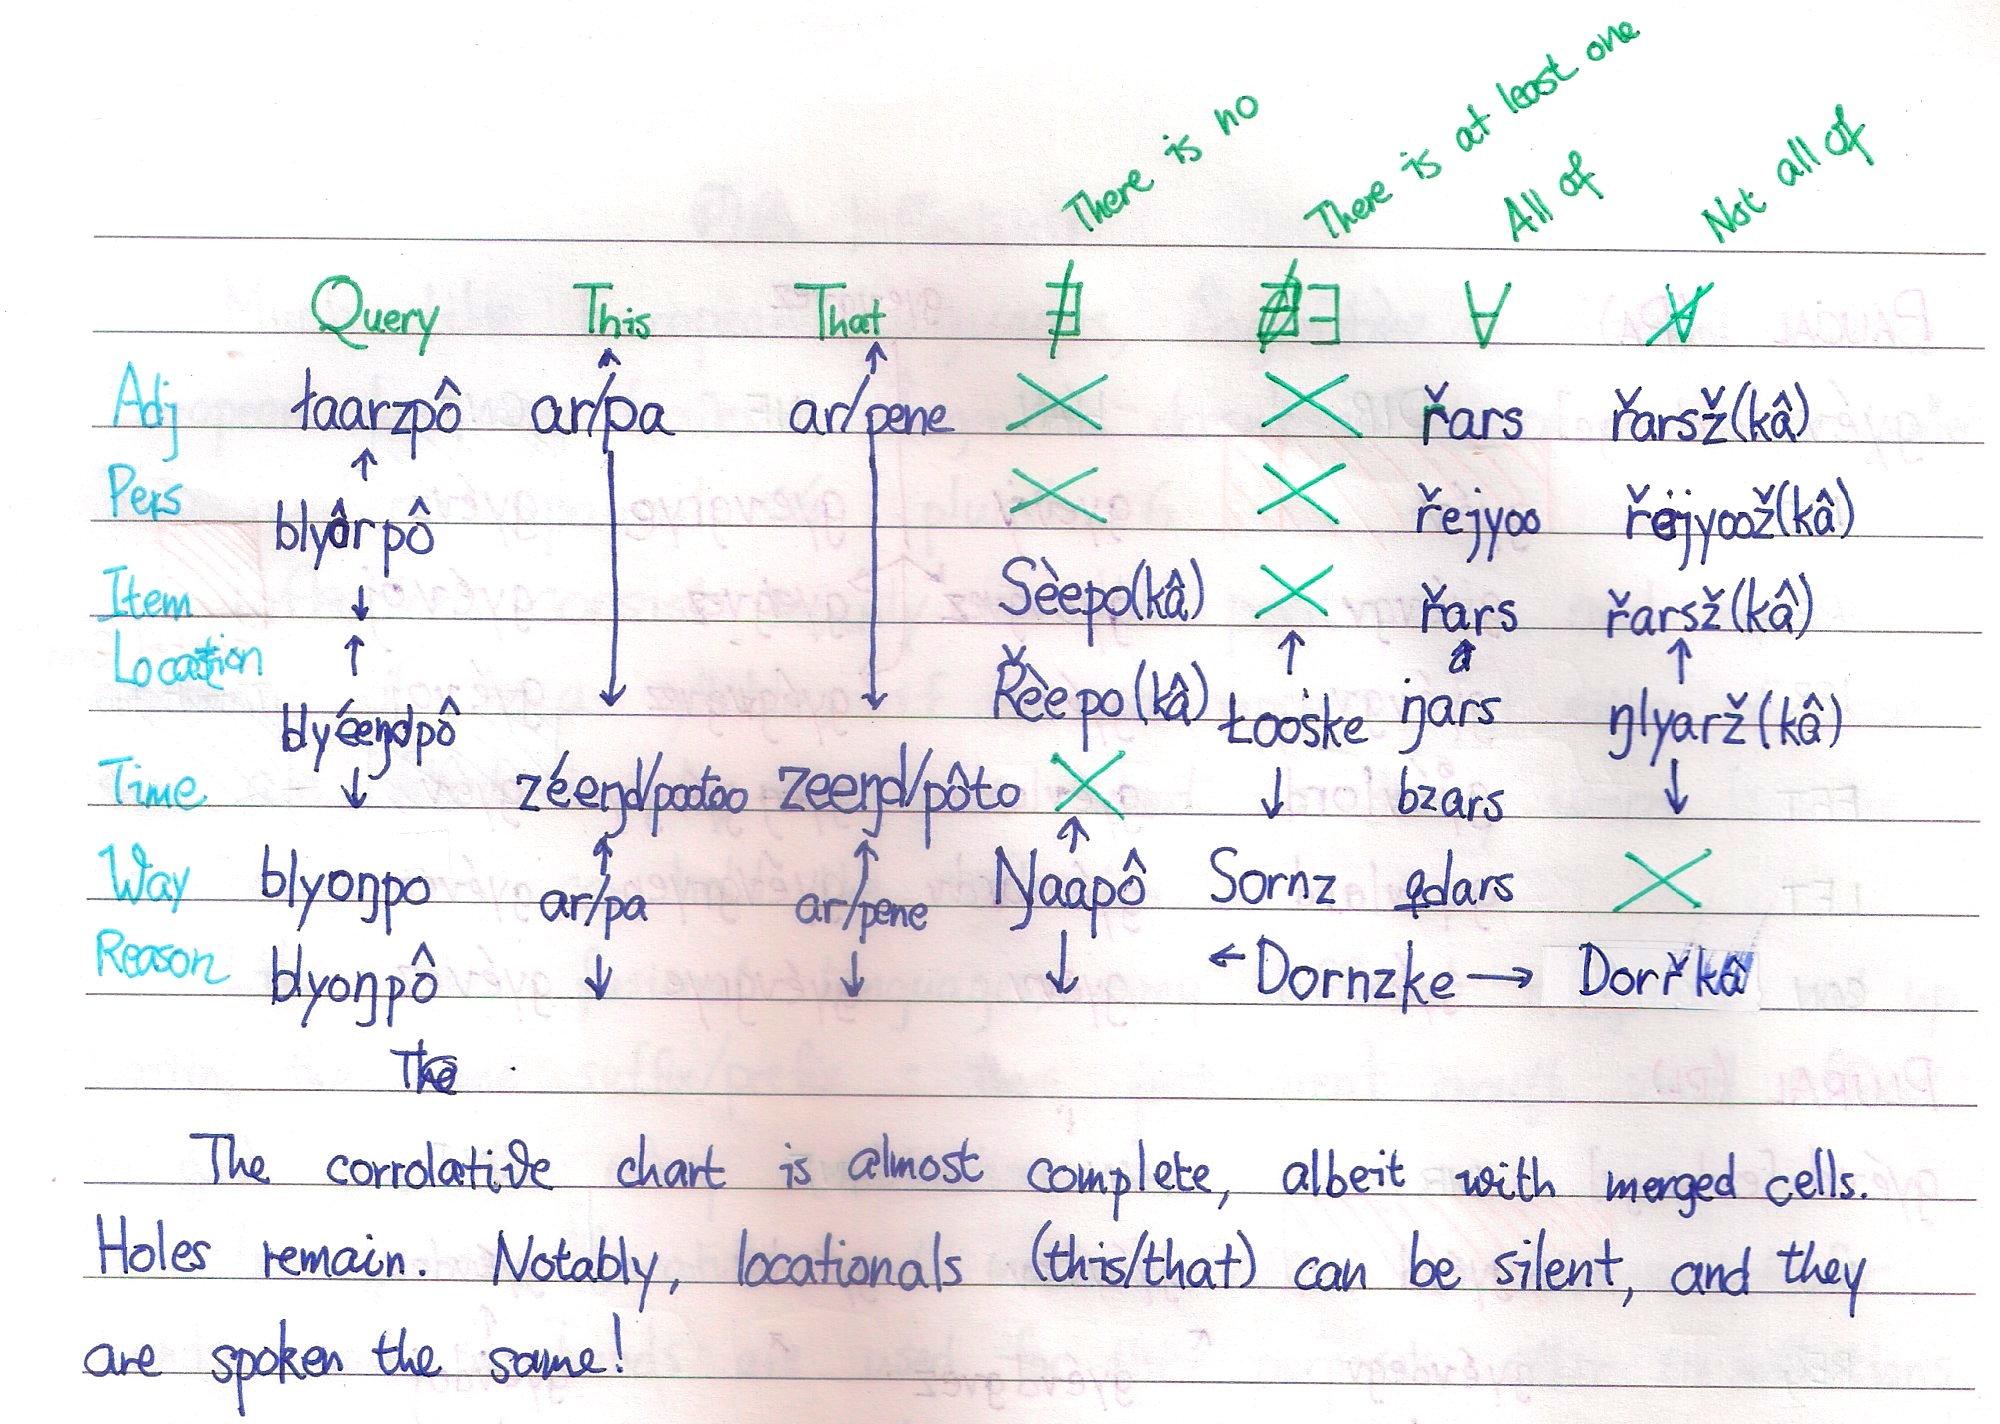 There is no
There is at least one
All of
Not all of
Query This That ∄ ∃ ∀
Adj ŧaarzpô ar/pa ar/pene řars řarsž(kâ)
Pers blyârpô řejyoo řejyoož(kâ)
Item Sèepo(kâ) řars řarsž(kâ)
Location blyéeŋdpô Řèepo(kâ) Łooske ŋars ŋlyarž(kâ)
Time zéeŋd/pootoo zeeŋd/pôto bzars
Way blyoŋpo ar/pa ar/pene Ŋaapô Sornz qdars
Reason blyoŋpô ← Dornzke → Dořkâ
The corrolative chart is almost complete, albeit with merged cells.
Holes remain. Notably, locationals (this/that) can be silent, and they
are spoken the same!